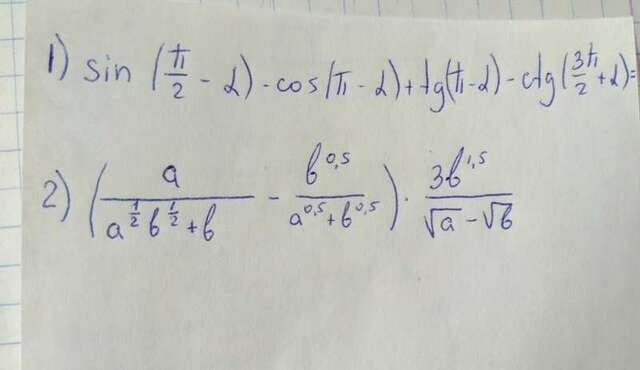 1) sin (π/2 - α) - cos(π - α) + tg(π - α) - ctg(3π/2 + α) =
2) (a / (a^(1/2) b^(1/2) + b) - b^(0,5) / (a^(0,5) + b^(0,5))) · 3b^(1,5) / (√a - √b)